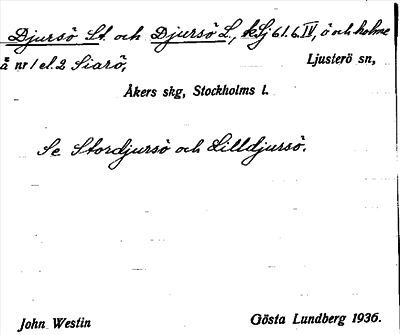 Djursö St. och Djursö L., kSj 61.6.IV, ö och holme
å nr 1 el. 2 Siarö, Ljusterö sn,
Åkers skg, Stockholms l.
Se Stordjursö och Lilldjursö.
John Westin Gösta Lundberg 1936.